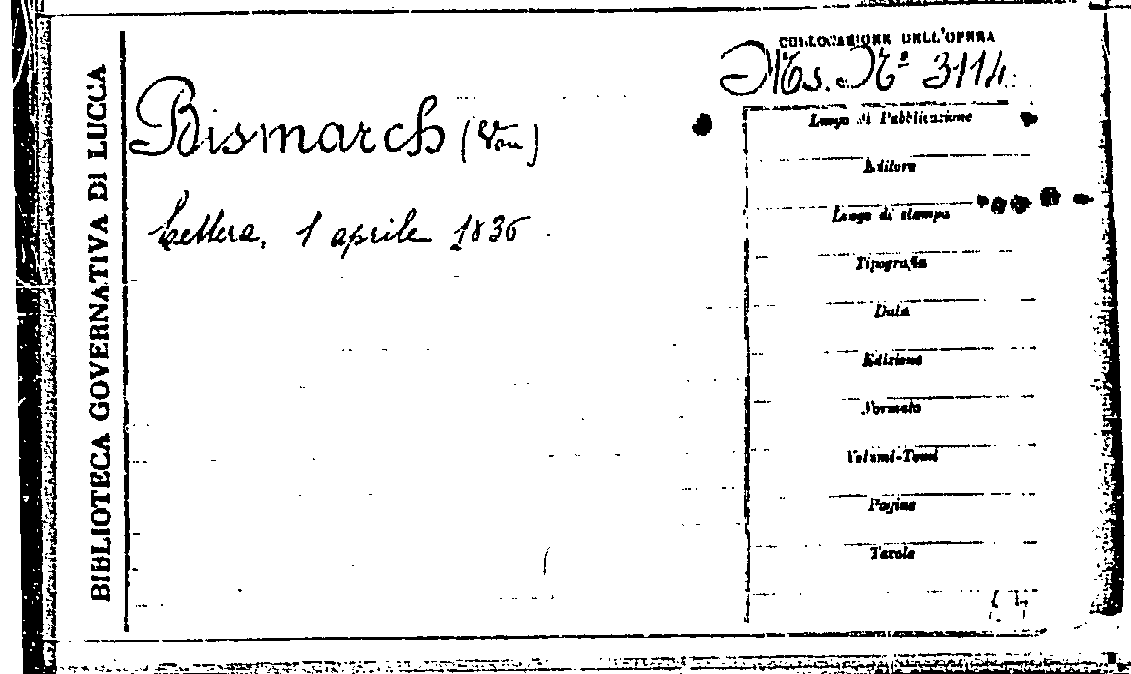 BIBLIOTECA GOVERNATIVA DI LUCCA
Bismarch (Von)
Lettera, 1 aprile 1836
COLLOCAZIONE DELL'OPERA
Ms. Nº 3114
Luogo di Pubblicazione
Editore
Luogo di stampa
Tipografia
Data
Edizione
Formato
Volumi-Tomi
Pagine
Tavole